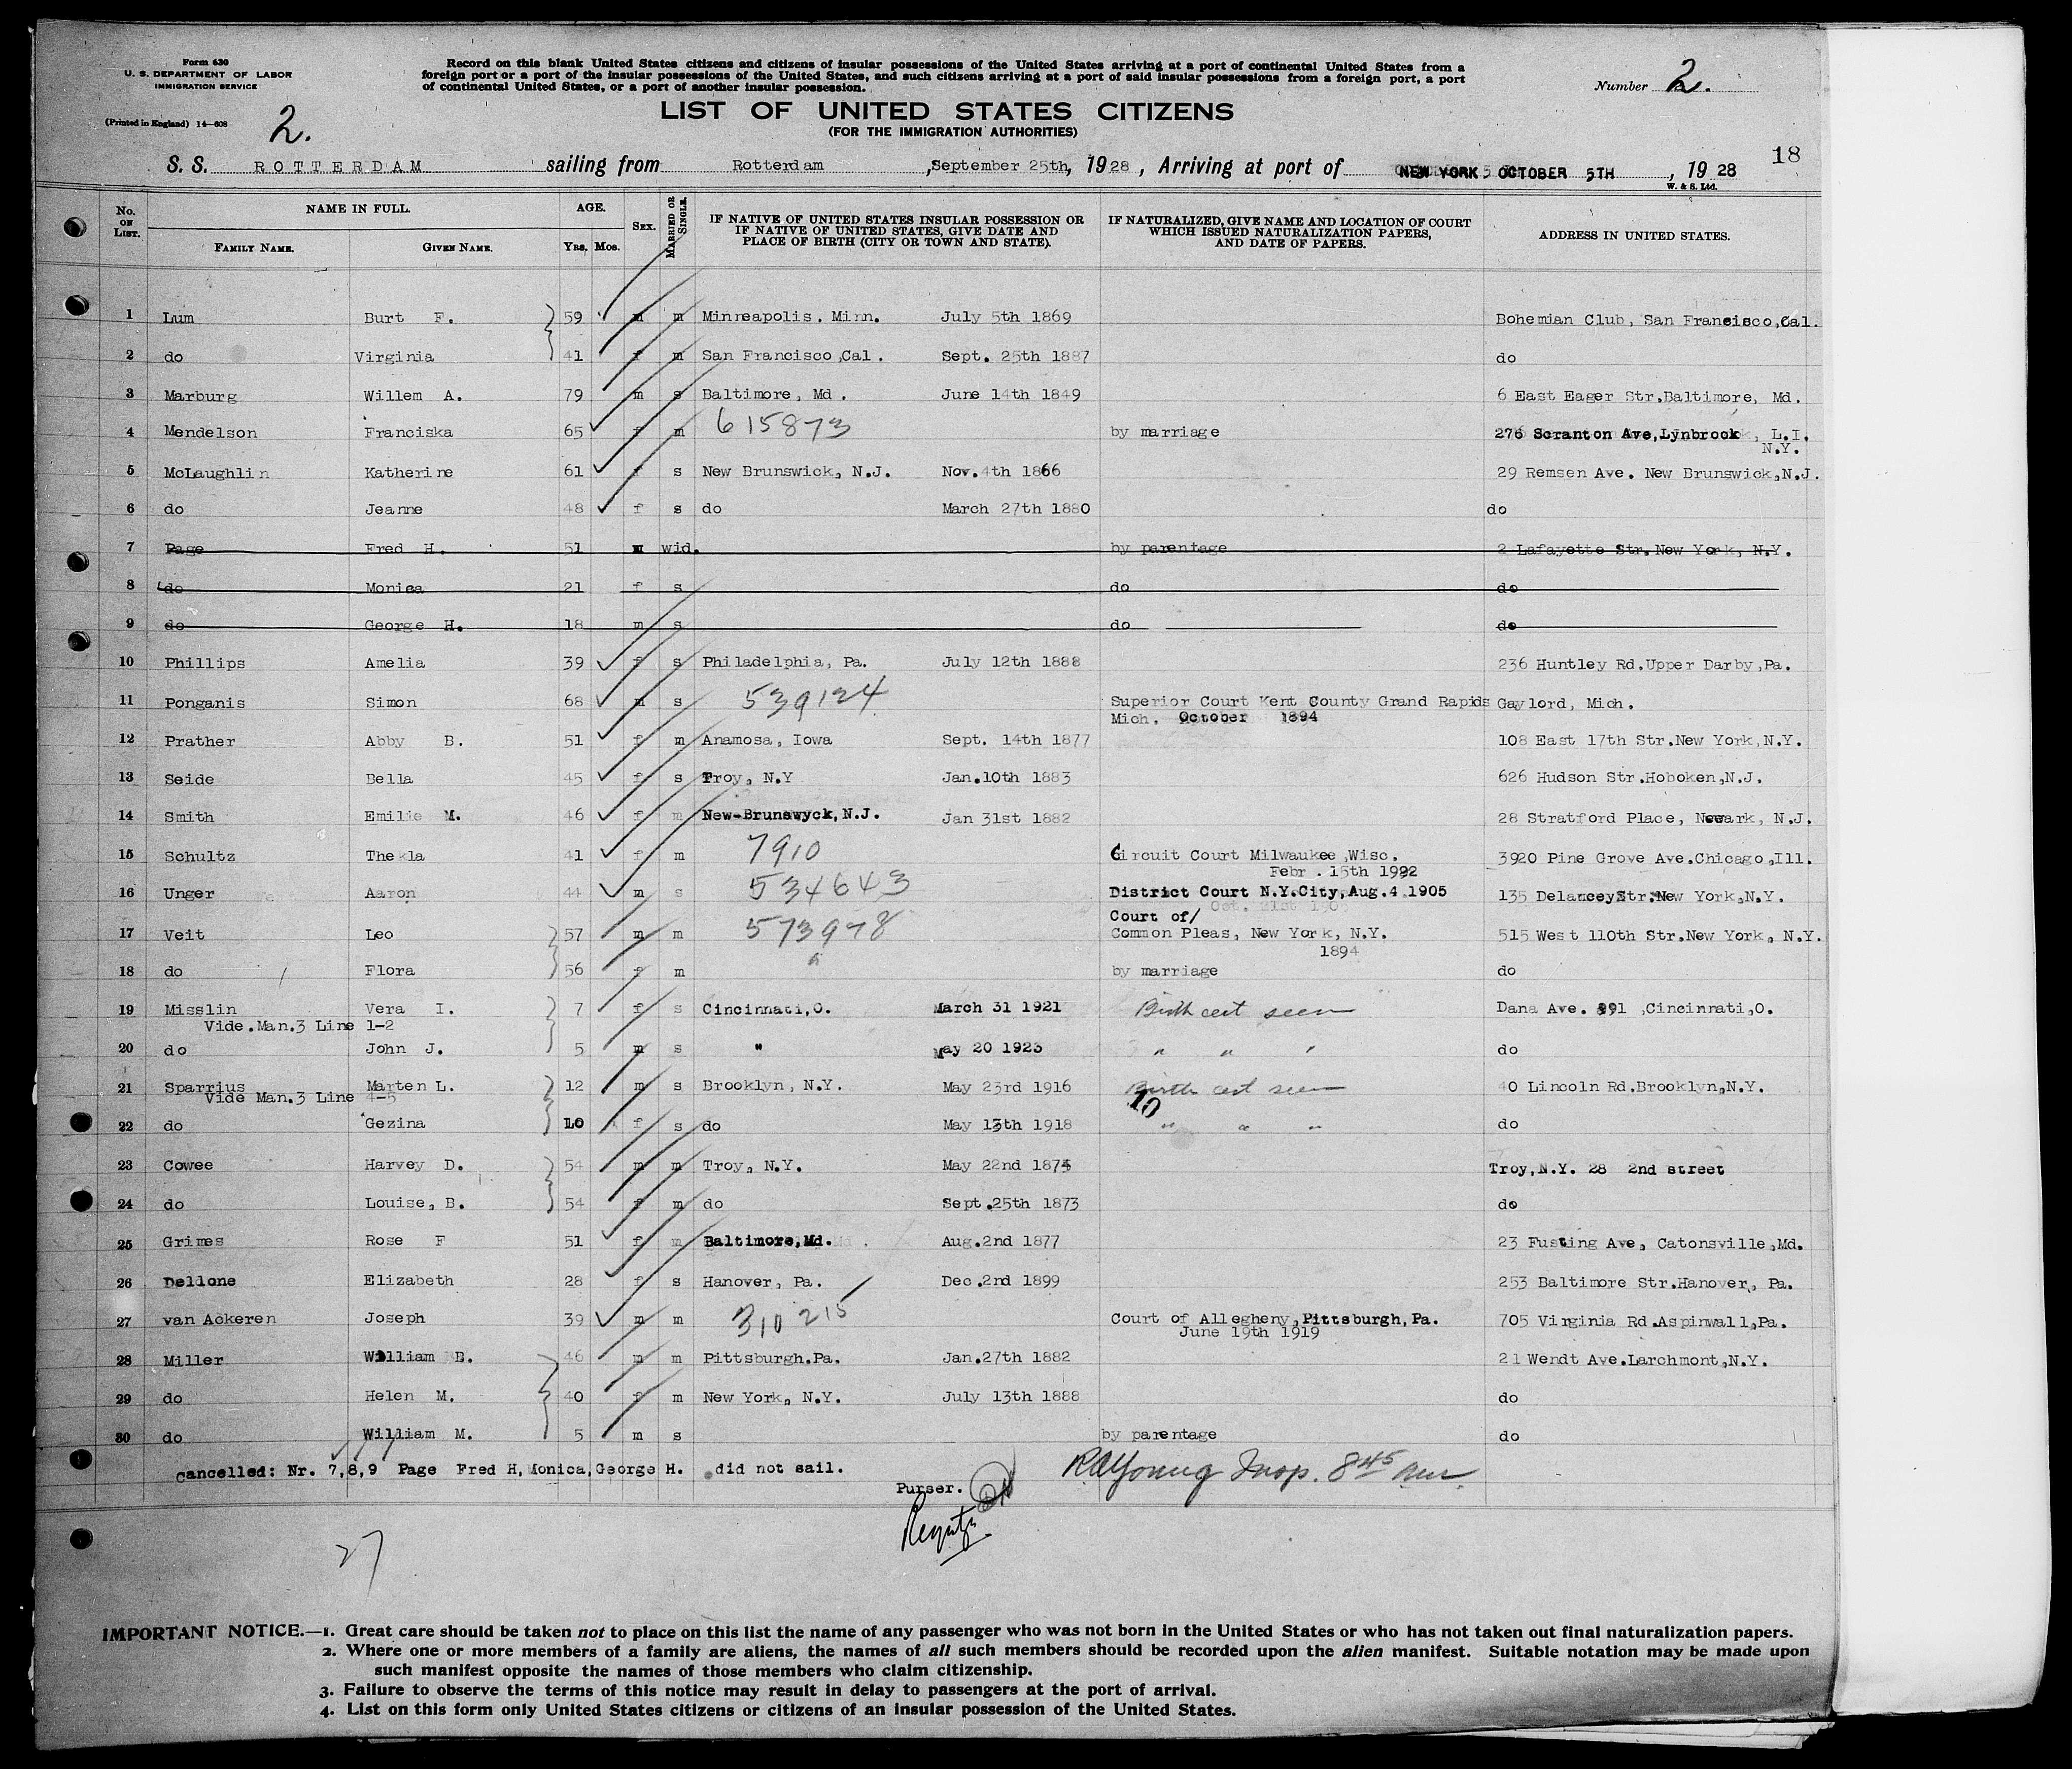 Form 630
U. S. DEPARTMENT OF LABOR
IMMIGRATION SERVICE
(Printed in England) 14—608
2.
Record on this blank United States citizens and citizens of insular possessions of the United States arriving at a port of continental United States from a
foreign port or a port of the insular possessions of the United States, and such citizens arriving at a port of said insular possessions from a foreign port, a port
of continental United States, or a port of another insular possession.
Number 2.
LIST OF UNITED STATES CITIZENS
(FOR THE IMMIGRATION AUTHORITIES)
18
S. S. ROTTERDAM sailing from Rotterdam, September 25th, 1928, Arriving at port of NEW YORK OCTOBER 5TH, 1928
W. & S. Ltd.
No. ON LIST. NAME IN FULL. FAMILY NAME. GIVEN NAME. AGE. YRS. MOS. SEX. MARRIED OR SINGLE. IF NATIVE OF UNITED STATES INSULAR POSSESSION OR IF NATIVE OF UNITED STATES, GIVE DATE AND PLACE OF BIRTH (CITY OR TOWN AND STATE). IF NATURALIZED, GIVE NAME AND LOCATION OF COURT WHICH ISSUED NATURALIZATION PAPERS, AND DATE OF PAPERS. ADDRESS IN UNITED STATES.
1 Lum Burt F. 59 m m Minneapolis. Minn. July 5th 1869 Bohemian Club, San Francisco,Cal.
2 do Virginia 41 f m San Francisco,Cal. Sept. 25th 1887 do
3 Marburg Willem A. 79 m s Baltimore, Md. June 14th 1849 6 East Eager Str.Baltimore, Md.
4 Mendelson Franciska 65 f m 615873 by marriage 276 Scranton Ave,Lynbrook, L.I.
N.Y.
5 McLaughlin Katherine 61 f s New Brunswick, N.J. Nov.4th 1866 29 Remsen Ave. New Brunswick,N.J.
6 do Jeanne 48 f s do March 27th 1880 do
7 Page Fred H. 51 m wid. by parentage 2 Lafayette Str.New York, N.Y.
8 do Monica 21 f s do do
9 do George H. 18 m s do do
10 Phillips Amelia 39 f s Philadelphia, Pa. July 12th 1888 236 Huntley Rd.Upper Darby,Pa.
11 Ponganis Simon 68 m s 539124 Superior Court Kent County Grand Rapids Gaylord, Mich.
Mich. October 1894
12 Prather Abby B. 51 f m Anamosa, Iowa Sept. 14th 1877 108 East 17th Str.New York,N.Y.
13 Seide Bella 45 f s Troy, N.Y Jan.10th 1883 626 Hudson Str.Hoboken,N.J.
14 Smith Emilie M. 46 f m New-Brunswyck,N.J. Jan 31st 1882 28 Stratford Place, Newark, N.J.
15 Schultz Thekla 41 f m 7910 Circuit Court Milwaukee,Wisc. 3920 Pine Grove Ave.Chicago,Ill.
Febr. 15th 1992
16 Unger Aaron 44 m s 534643 District Court N.Y.City,Aug.4.1905 135 DelanceyStr.New York,N.Y.
Court of/
17 Veit Leo 57 m m 573978 Common Pleas, New York, N.Y. 515 West 110th Str.New York, N.Y.
1894
18 do Flora 56 f m " by marriage do
19 Misslin Vera I. 7 f s Cincinnati,O. March 31 1921 Birth cert seen Dana Ave. 991 ,Cincinnati,O.
Vide.Man.3 Line 1-2
20 do John J. 5 m s " May 20 1923 " " " do
21 Sparrius Marten L. 12 m s Brooklyn, N.Y. May 23rd 1916 Birth cert seen 40 Lincoln Rd.Brooklyn,N.Y.
Vide Man.3 Line 4-5
10
22 do Gezina 10 f s do May 13th 1918 " " " do
23 Cowee Harvey D. 54 m m Troy, N.Y. May 22nd 1874 Troy,N.Y. 28 2nd street
24 do Louise, B. 54 f m do Sept.25th 1873 do
25 Grimes Rose F 51 f m Baltimore,Md. Aug.2nd 1877 23 Fusting Ave, Catonsville,Md.
26 Dellone Elizabeth 28 f s Hanover, Pa. Dec.2nd 1899 253 Baltimore Str.Hanover, Pa.
27 van Ackeren Joseph 39 m m 310215 Court of Allegheny,Pittsburgh,Pa. 705 Virginia Rd.Aspinwall,Pa.
June 19th 1919
28 Miller William B. 46 m m Pittsburgh.Pa. Jan.27th 1882 21 Wendt Ave.Larchmont,N.Y.
29 do Helen M. 40 f m New York, N.Y. July 13th 1888 do
30 do William M. 5 m s by parentage do
cancelled: Nr. 7,8,9 Page Fred H,Monica,George H. did not sail.
Purser.
RAYoung Insp. 8 45 am
27
IMPORTANT NOTICE.—1. Great care should be taken not to place on this list the name of any passenger who was not born in the United States or who has not taken out final naturalization papers.
2. Where one or more members of a family are aliens, the names of all such members should be recorded upon the alien manifest. Suitable notation may be made upon
such manifest opposite the names of those members who claim citizenship.
3. Failure to observe the terms of this notice may result in delay to passengers at the port of arrival.
4. List on this form only United States citizens or citizens of an insular possession of the United States.